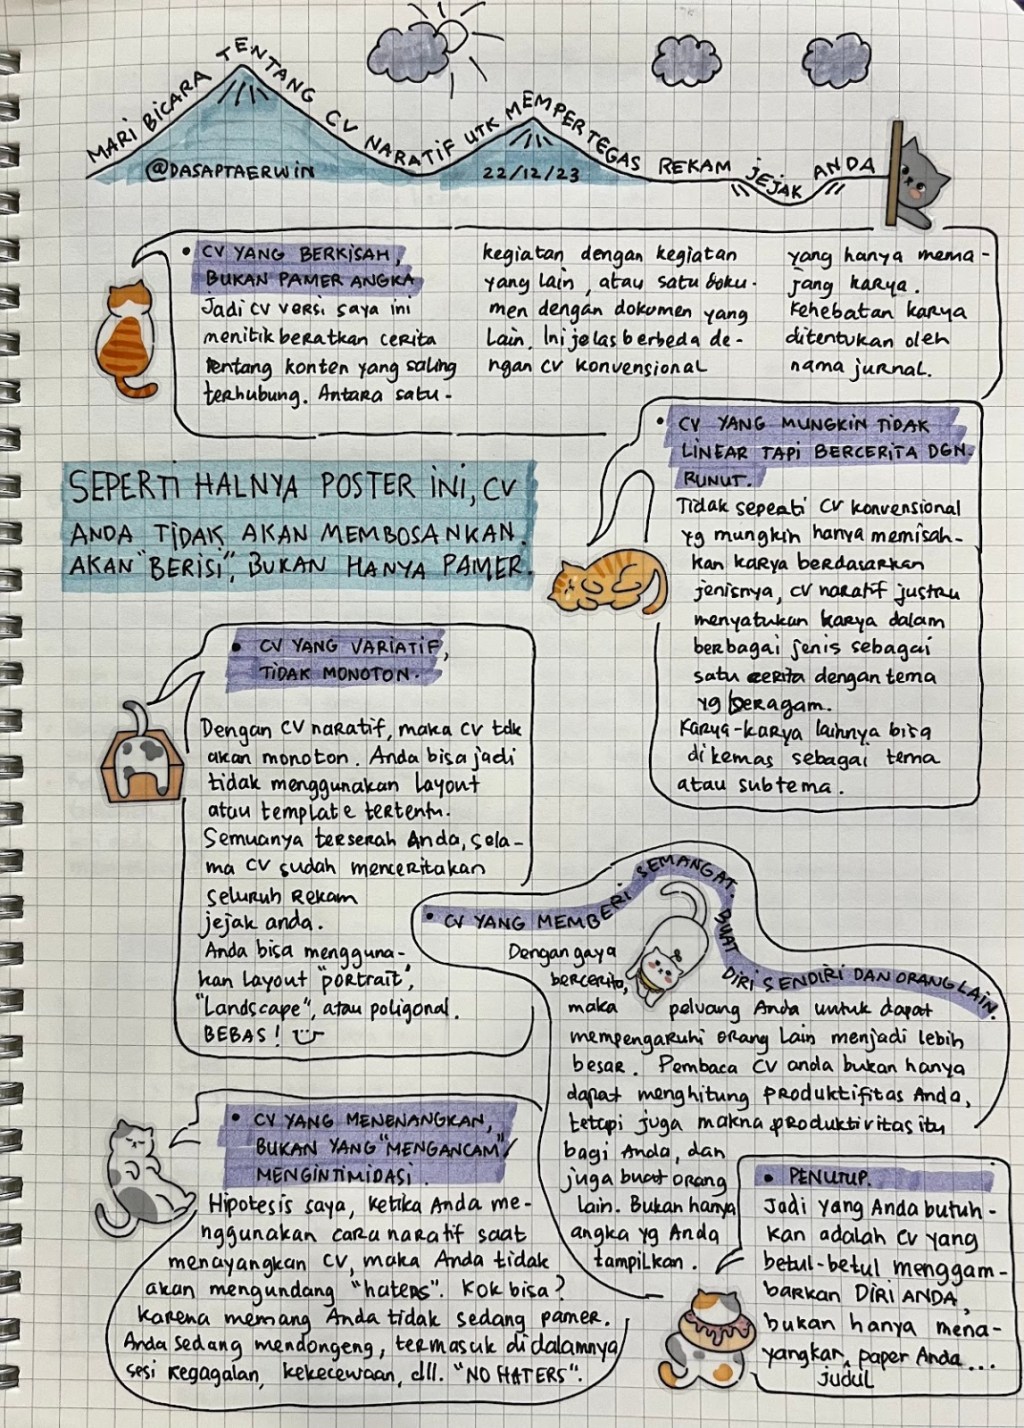 MARI BICARA TENTANG CV NARATIF UTK MEMPERTEGAS REKAM JEJAK ANDA
@DASAPTAERWIN
22/12/23
• CV YANG BERKISAH,
BUKAN PAMER ANGKA
Jadi CV versi saya ini
menitik beratkan cerita
tentang konten yang saling
terhubung. Antara satu-
kegiatan dengan kegiatan
yang lain, atau satu doku-
men dengan dokumen yang
lain. Ini jelas berbeda de-
ngan CV konvensional
yang hanya mema-
jang karya.
Kehebatan karya
ditentukan oleh
nama jurnal.
• CV YANG MUNGKIN TIDAK
LINEAR TAPI BERCERITA DGN.
RUNUT.
Tidak seperti CV konvensional
yg mungkin hanya memisah-
kan karya berdasarkan
jenisnya, CV naratif justru
menyatukan karya dalam
berbagai jenis sebagai
satu cerita dengan tema
yg beragam.
Karya-karya lainnya bisa
dikemas sebagai tema
atau subtema.
SEPERTI HALNYA POSTER INI, CV
ANDA TIDAK AKAN MEMBOSANKAN.
AKAN "BERISI", BUKAN HANYA PAMER.
• CV YANG VARIATIF,
TIDAK MONOTON.
Dengan CV naratif, maka CV tdk
akan monoton. Anda bisa jadi
tidak menggunakan layout
atau template tertentu.
Semuanya terserah Anda, sela-
ma CV sudah menceritakan
seluruh rekam
jejak anda.
Anda bisa mengguna-
kan layout "portrait",
"landscape", atau poligonal.
BEBAS!
• CV YANG MEMBERI SEMANGAT. BUAT DIRI SENDIRI DAN ORANG LAIN.
Dengan gaya
bercerita,
maka peluang Anda untuk dapat
mempengaruhi orang lain menjadi lebih
besar. Pembaca CV anda bukan hanya
dapat menghitung produktifitas Anda,
tetapi juga makna produktivitas itu
bagi Anda, dan
juga buat orang
lain. Bukan hanya
angka yg Anda
tampilkan.
• CV YANG MENENANGKAN,
BUKAN YANG "MENGANCAM"/
MENGINTIMIDASI.
Hipotesis saya, ketika Anda me-
nggunakan cara naratif saat
menayangkan CV, maka Anda tidak
akan mengundang "haters". Kok bisa?
karena memang Anda tidak sedang pamer.
Anda sedang mendongeng, termasuk di dalamnya
sesi kegagalan, kekecewaan, dll. "NO HATERS".
• PENUTUP.
Jadi yang Anda butuh-
kan adalah CV yang
betul-betul menggam-
barkan DIRI ANDA,
bukan hanya mena-
yangkan judul paper Anda...